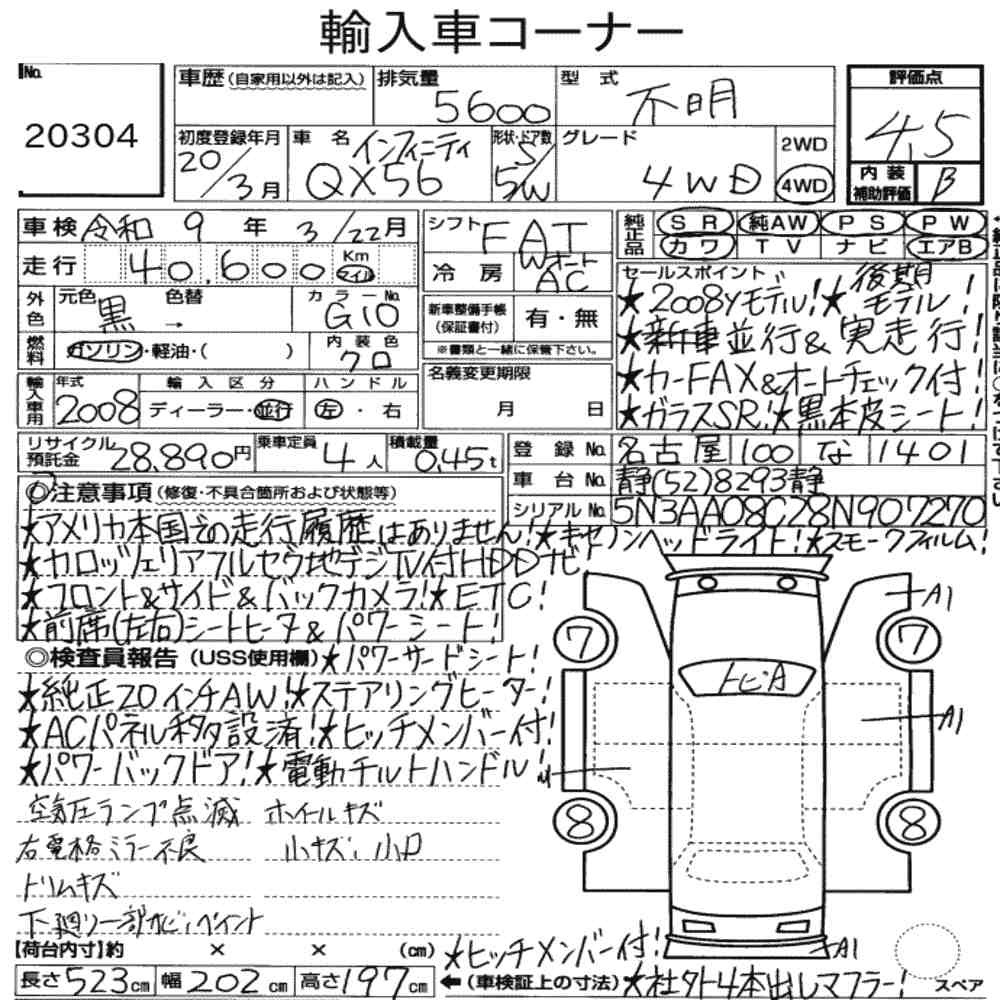 輸入車コーナー
No. 20304
車歴 (自家用以外は記入) 排気量 5600 型式 不明
評価点 4.5
初度登録年月 20/3月 車名 インフィニティ QX56 形状・ドア数 S/5W グレード 4WD 2WD 4WD
内装補助評価 B
車検 令和 9年 3/22月 シフト FAT
純正品 SR 純AW PS PW
カワ TV ナビ エアB
走行 40,600 Km マイル 冷房 Wオート AC
セールスポイント 後期
★2008Yモデル!★モデル!
外色 元色 黒 → 色替 カラーNo. G10 新車整備手帳(保証書付) 有・無
★新車並行&実走行!
燃料 ガソリン・軽油・( ) 内装色 クロ ※書類と一緒に保管下さい。
★カーFAX&オートチェック付!
輸入車用 年式 2008 輸入区分 ディーラー・並行 ハンドル 左・右 名義変更期限 月 日
★ガラスSR!★黒本皮シート!
リサイクル預託金 28,890円 乗車定員 4人 積載量 0.45t
登録No. 名古屋 100 な 1401
車台No. 静(52)8293静
シリアルNo. 5N3AA08C28N907270
◎注意事項 (修復・不具合箇所および状態等)
★アメリカ本国での走行履歴はありません!★キセノンヘッドライト!★スモークフィルム!
★カロッツェリアフルセグ地デジTV付HDDナビ
★フロント&サイド&バックカメラ!★ETC!
★前席(左右)シートヒータ&パワーシート!
◎検査員報告 (USS使用欄) ★パワーサードシート!
★純正20インチAW!★ステアリングヒーター!
★ACパネル移設済!★ヒッチメンバー付!
★パワーバックドア!★電動チルトハンドル!
空気圧ランプ点滅 ホイールキズ
右電格ミラー不良 小キズ、小凹
トリムキズ
下廻り一部サビ、ペイント
A1
7 7
トビA
A1
8 8
A1
【荷台内寸】約 × × (cm)
★ヒッチメンバー付!
長さ 523cm 幅 202cm 高さ 197cm ←(車検証上の寸法) ★社外4本出しマフラー!
スペア